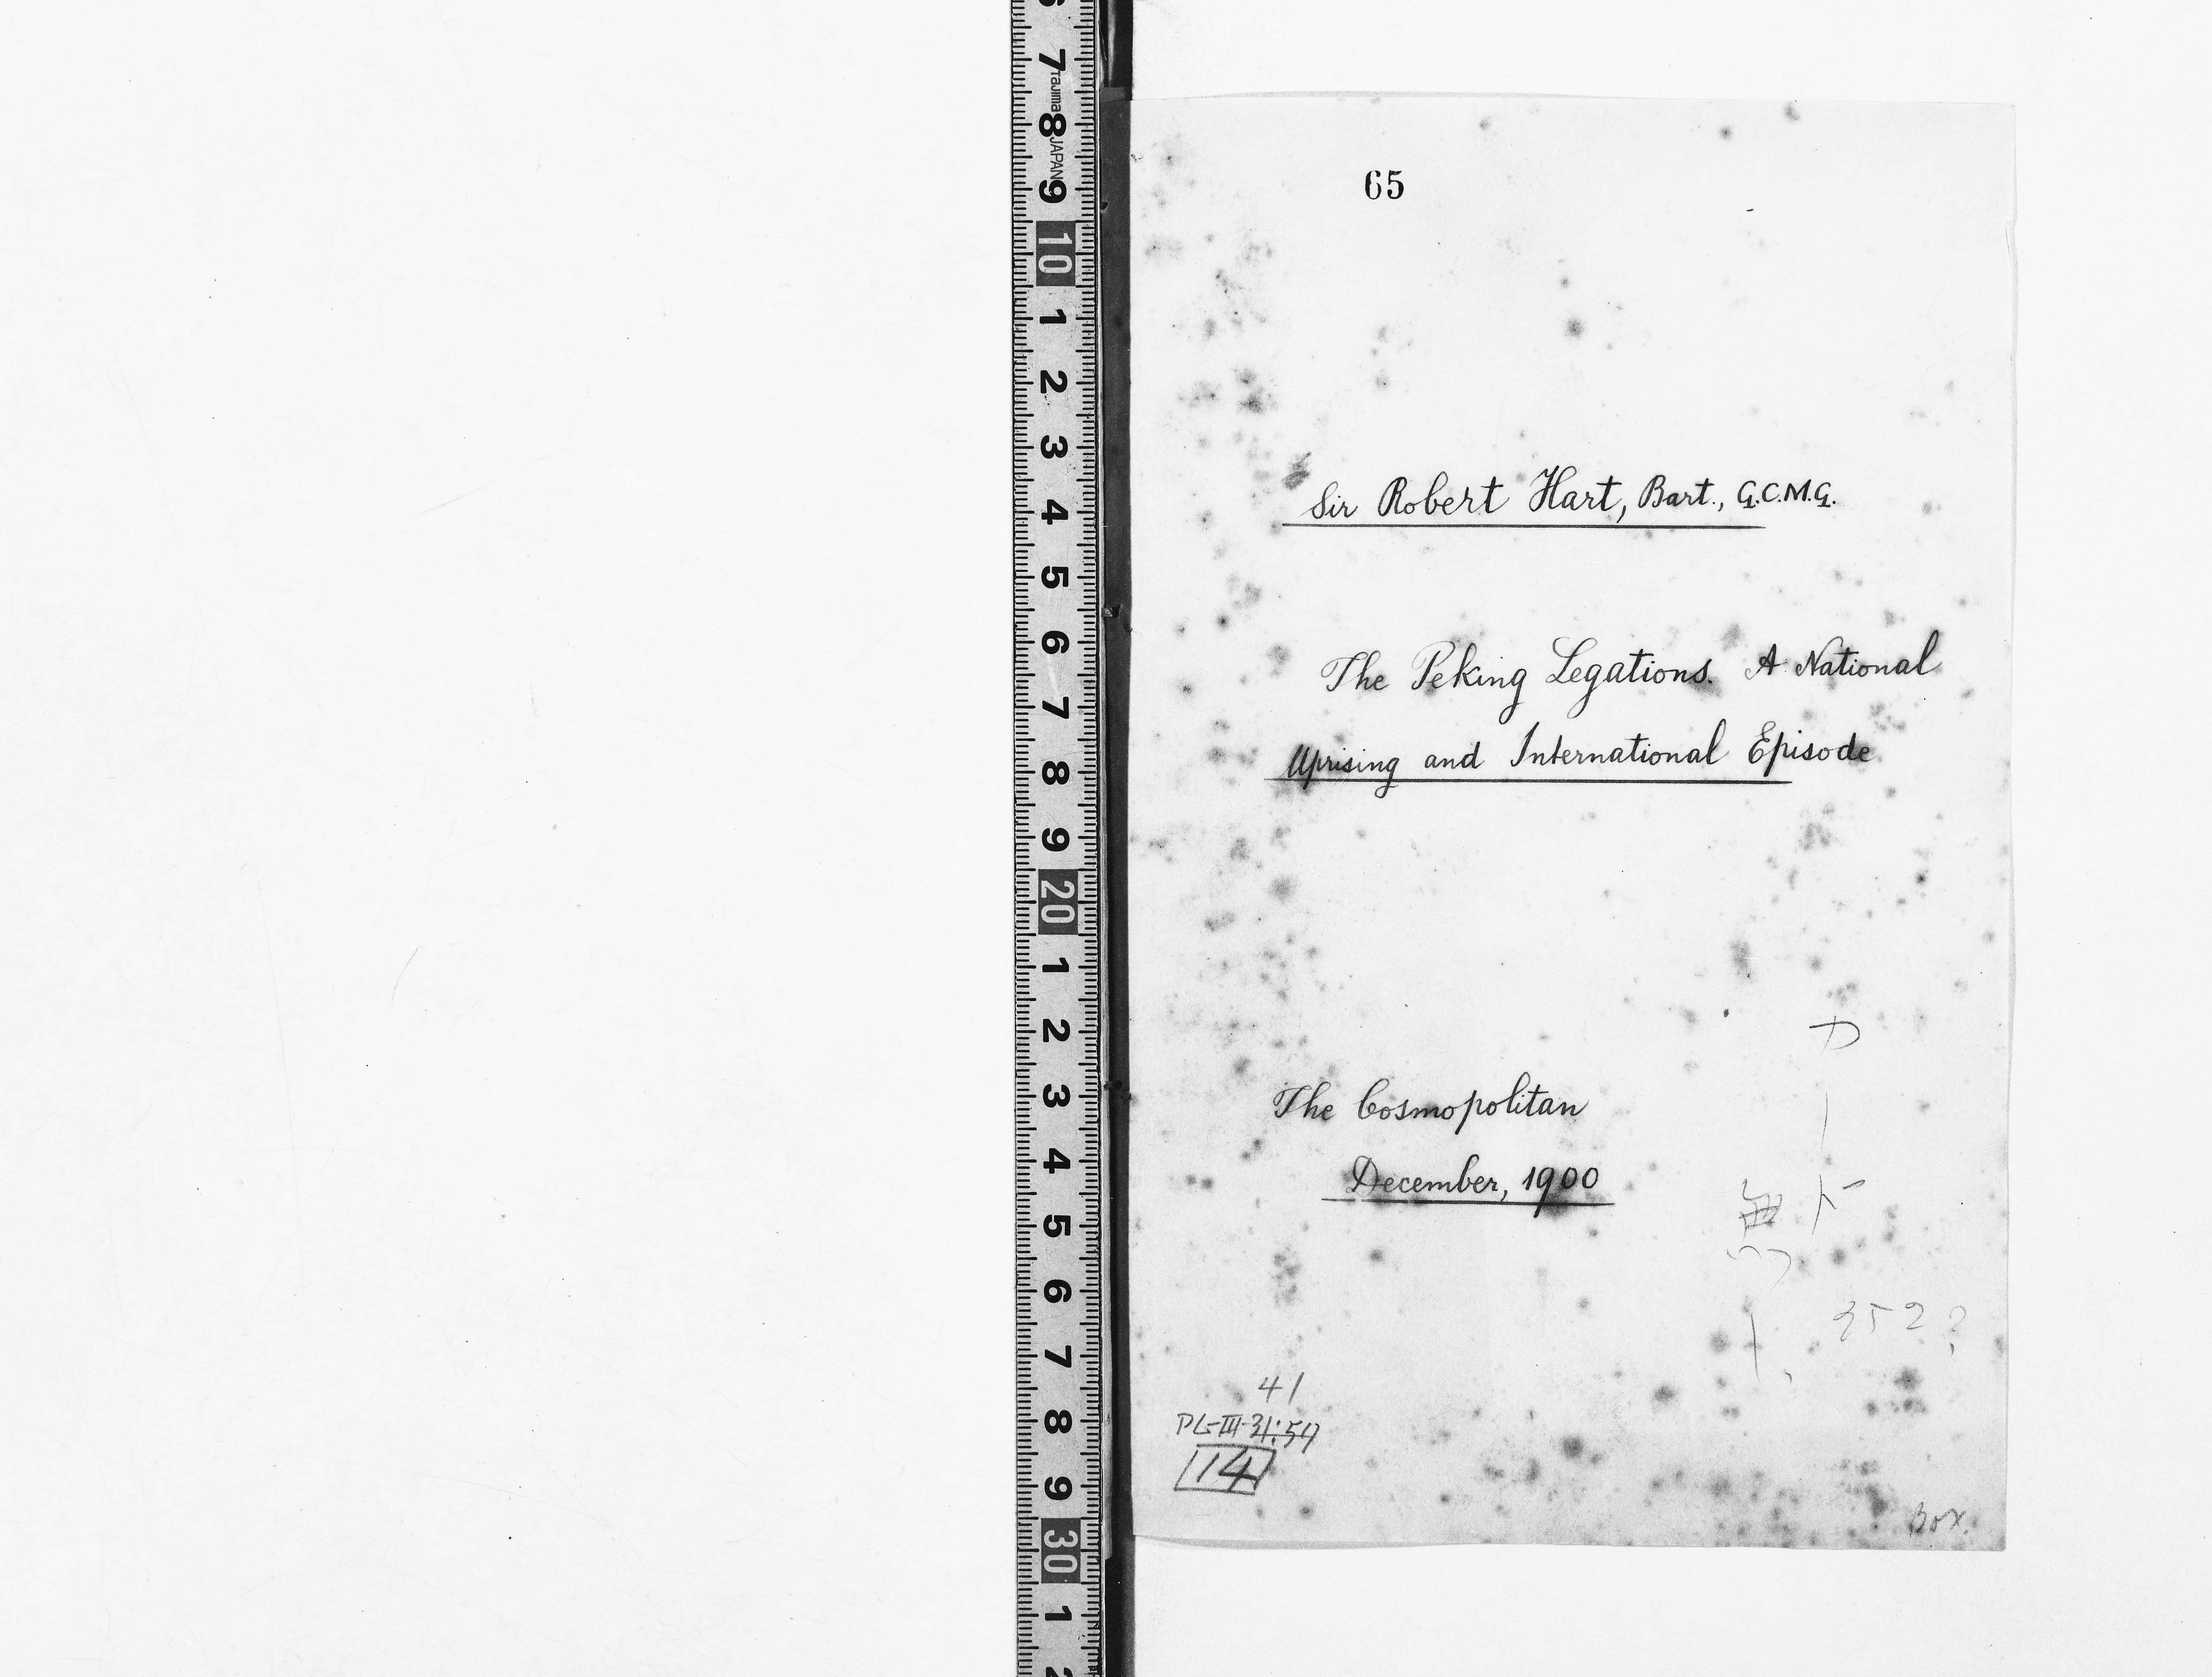 65
Sir Robert Hart, Bart., G.C.M.G.
The Peking Legations. A National
Uprising and International Episode
The Cosmopolitan
December, 1900
カード
352?
41
14
Box.
6 7 8 9 10 1 2 3 4 5 6 7 8 9 20 1 2 3 4 5 6 7 8 9 30 1 2
Tajima JAPAN